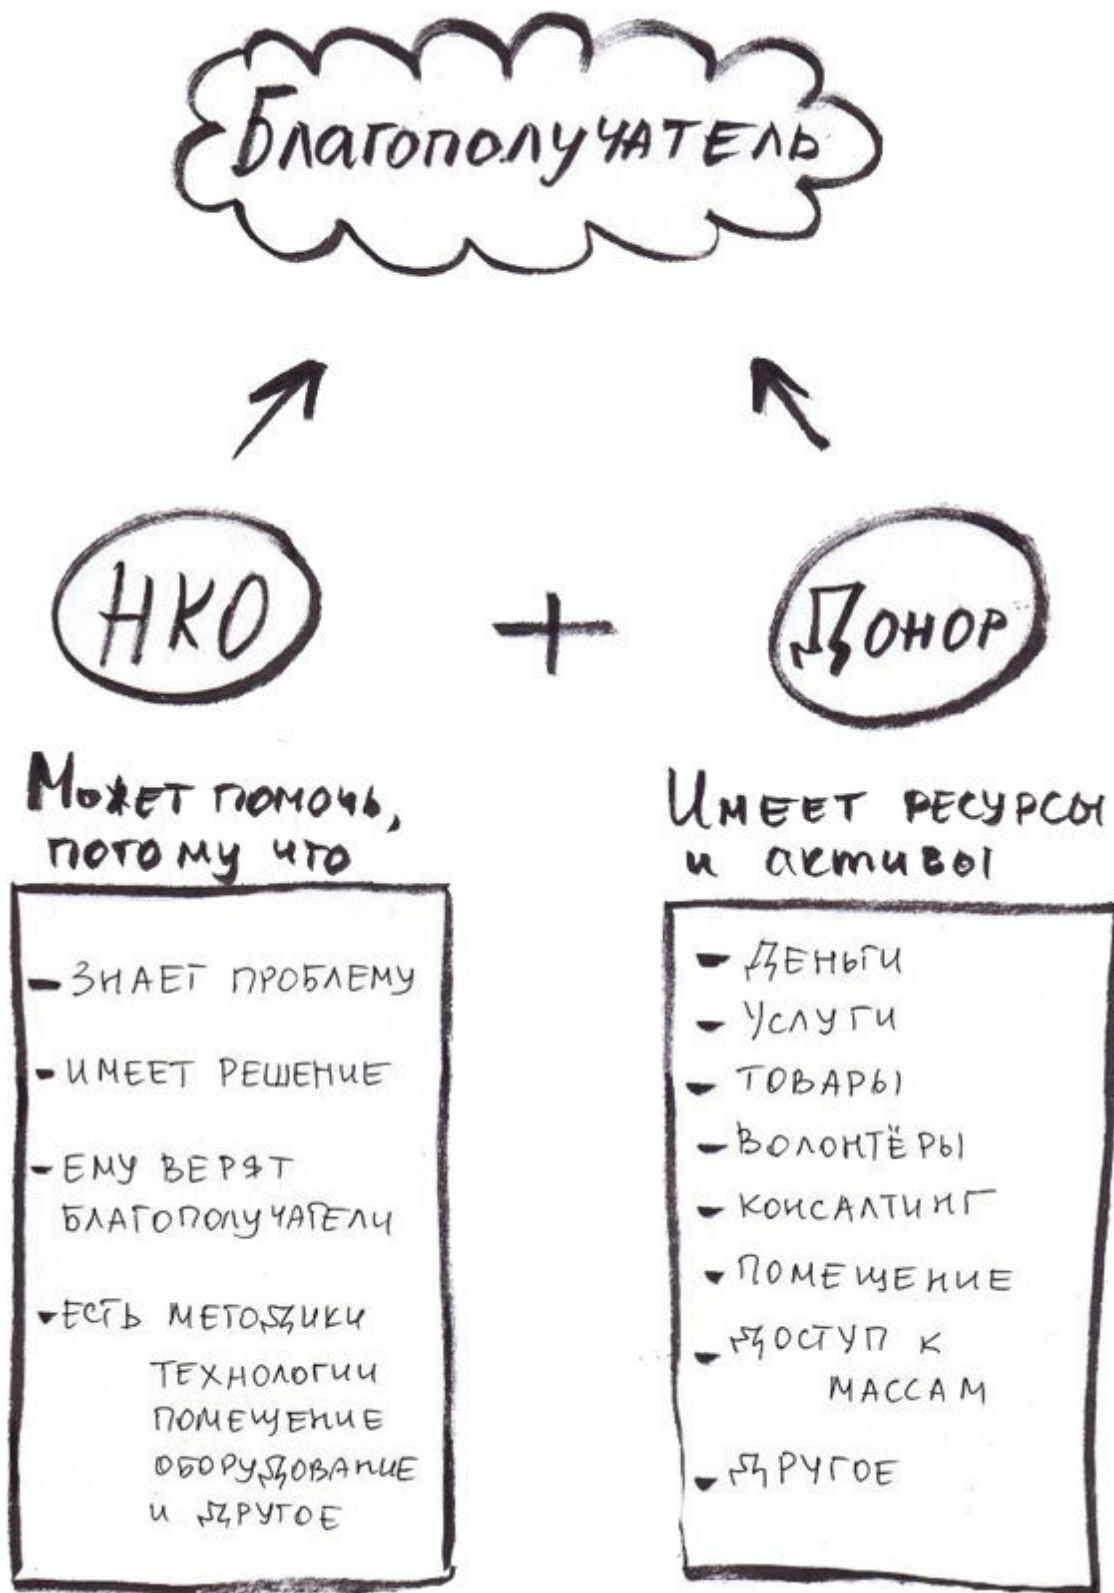 Благополучатель
НКО
+
Донор
Может помочь,
потому что
- Знает проблему
- имеет решение
- ему верят
благополучатели
- есть методики
технологии
помещение
оборудование
и другое
Имеет ресурсы
и активы
- Деньги
- Услуги
- товары
- волонтёры
- консалтинг
- помещение
- доступ к
массам
- другое